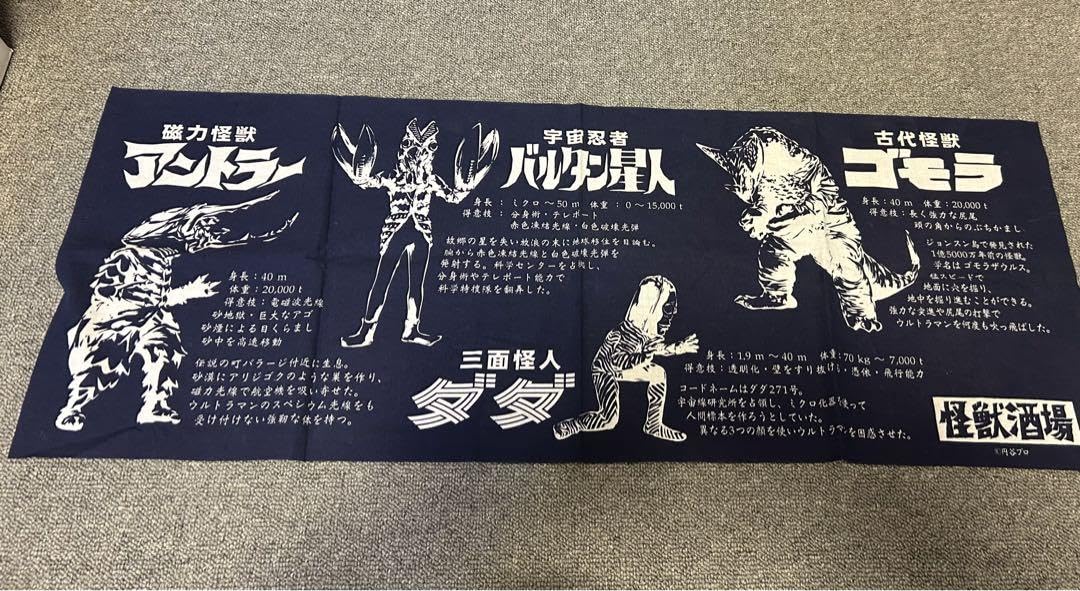 磁力怪獣
アントラー
身長：40m
体重：20,000t
得意技：電磁波光線
砂地獄・巨大なアゴ
砂煙による目くらまし
砂中を高速移動
伝説の町バラージ付近に生息。
砂漠にアリジゴクのような巣を作り、
磁力光線で航空機を吸い寄せた。
ウルトラマンのスペシウム光線をも
受け付けない強靭な体を持つ。
宇宙忍者
バルタン星人
身長：ミクロ〜50m 体重：0〜15,000t
得意技：分身術・テレポート
赤色凍結光線・白色破壊光弾
故郷の星を失い放浪の末に地球移住を目論む。
腕から赤色凍結光線と白色破壊光弾を
発射する。科学センターを占拠し、
分身術やテレポート能力で
科学特捜隊を翻弄した。
三面怪人
ダダ
身長：1.9m〜40m 体重：70kg〜7,000t
得意技：透明化・壁をすり抜ける・憑依・飛行能力
コードネームはダダ271号。
宇宙線研究所を占領し、ミクロ化器を使って
人間標本を作ろうとしていた。
異なる3つの顔を使いウルトラマンを困惑させた。
古代怪獣
ゴモラ
身長：40m 体重：20,000t
得意技：長く強力な尻尾
頭の角からのぶちかまし
ジョンスン島で発見された
1億5000万年前の怪獣。
学名はゴモラザウルス。
猛スピードで
地面に穴を掘り、
地中を掘り進むことができる。
強力な突進や尻尾の打撃で
ウルトラマンを何度も吹っ飛ばした。
怪獣酒場
©円谷プロ